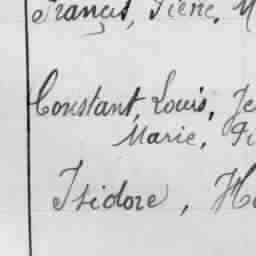 Français, Pierre, M
Constant, Louis, Je
Marie, Pi
Isidore, H